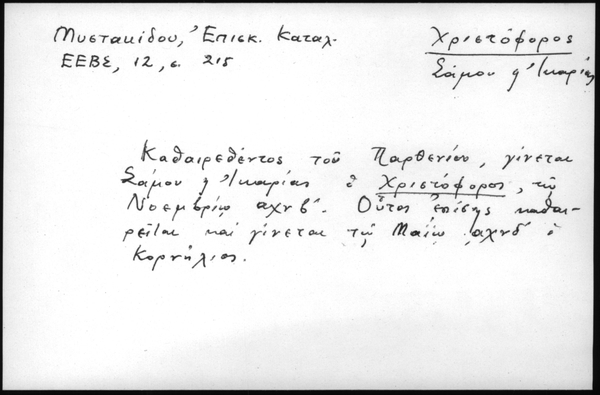 Μυστακίδου, Ἐπισκ. Καταλ.
ΕΕΒΣ, 12, σ. 215
Χριστόφορος
Σάμου ἢ Ἰκαρίας
Καθαιρεθέντος τοῦ Παρθενίου, γίνεται
Σάμου ἢ Ἰκαρίας ὁ Χριστόφορος, τῷ
Νοεμβρίῳ αχνβ΄. Οὗτος ἐπίσης καθαι-
ρεῖται καὶ γίνεται τῷ Μαΐῳ αχνδ΄ ὁ
Κορνήλιος.